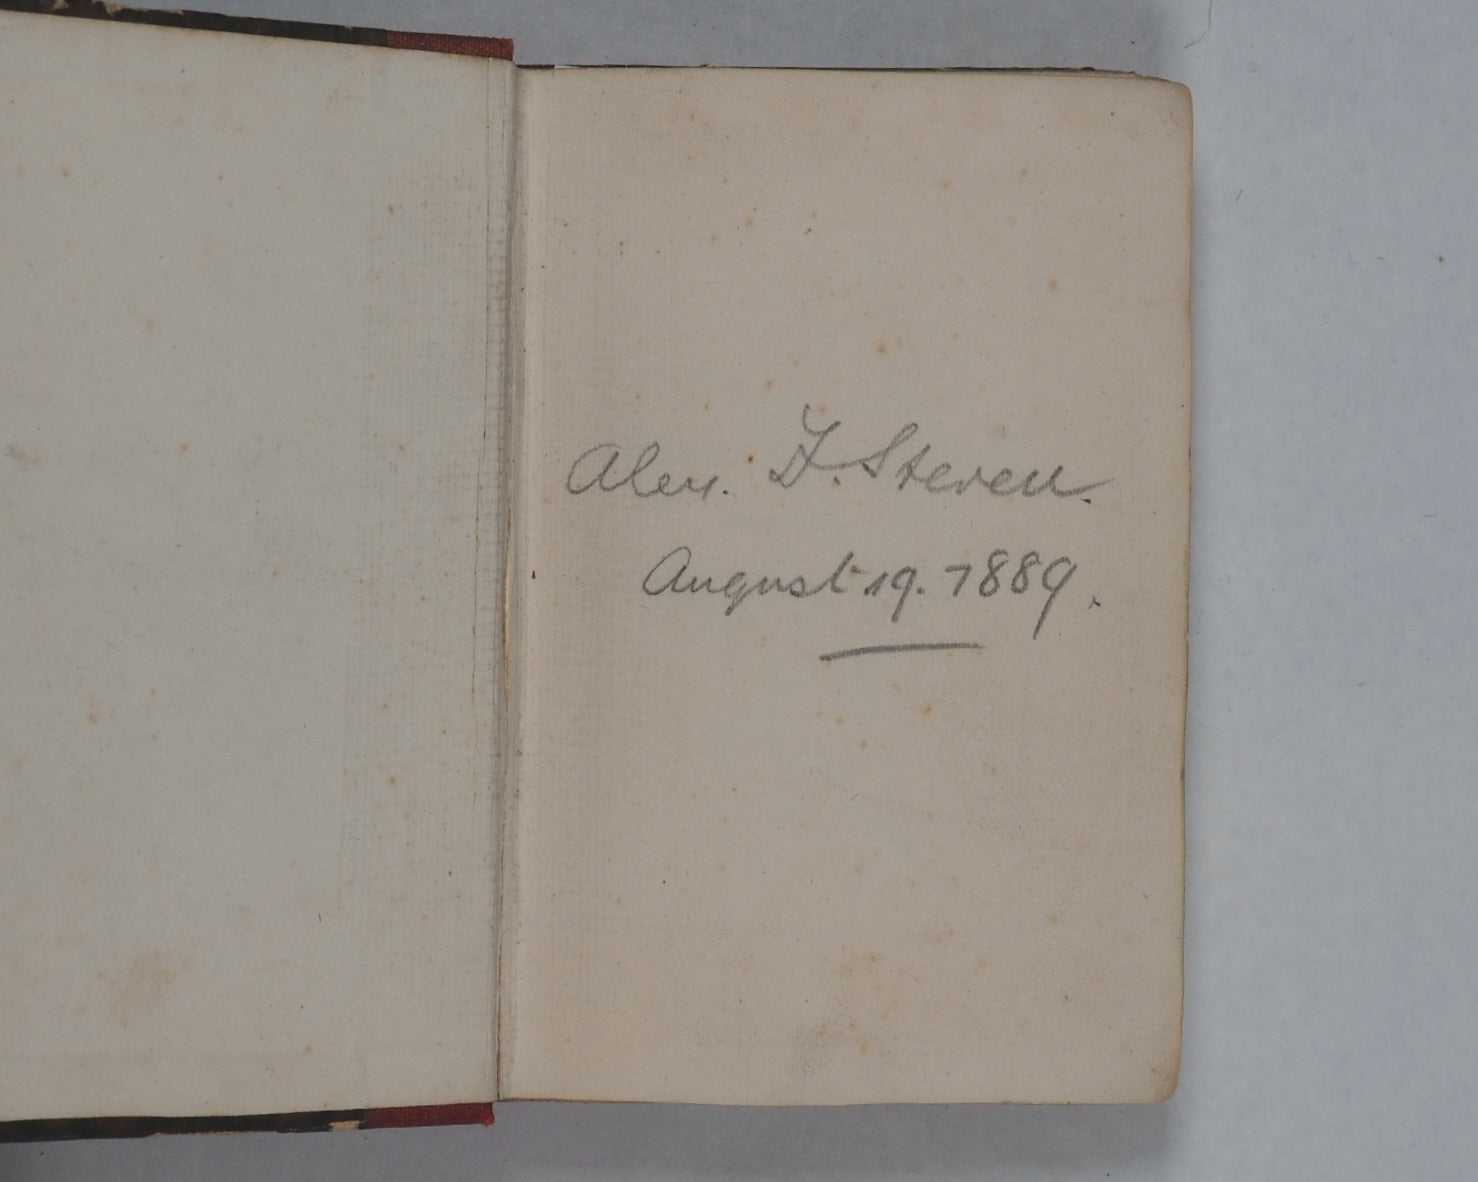 Alex. F. Steven.
August 19. 1889.